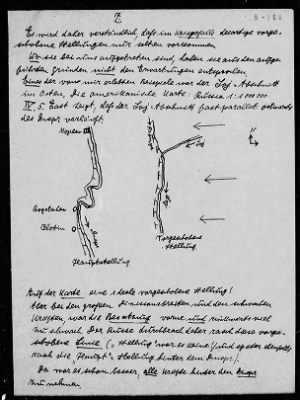 2
B-786
Es wird daher verständlich, daß im Kriegsspiel derartige vorge-
schobene Stellungen nur selten vorkommen.
Wo sie bei uns aufgetreten sind, haben sie aus den aufge-
führten Gründen nicht den Erwartungen entsprochen.
Eines der von mir erlebten Beispiele war der Sog-Abschnitt
im Osten. Die amerikanische Karte: Russia 1:1 000 000
IV, 5. East zeigt, daß der Sog-Abschnitt fast parallel ostwärts
des Dnepr verläuft.
Mogilew
Rogatschew
Shlobin
Dnepr
Hauptstellung
Sog
Vorgeschobene
Stellung
N
Auf der Karte eine ideale vorgeschobene Stellung!
Aber bei den großen Dimensionen und den schwachen
Kräften, war die Besetzung vorne und rückwärts viel
zu schwach. Der Russe durchbrach daher rasch diese vorge-
schobene Linie ("Stellung" war es keine!) und später ebenfalls
auch die "Haupt"-Stellung hinter dem Dnepr.
Da war es schon besser, alle Kräfte hinter den Dnepr
zu nehmen.